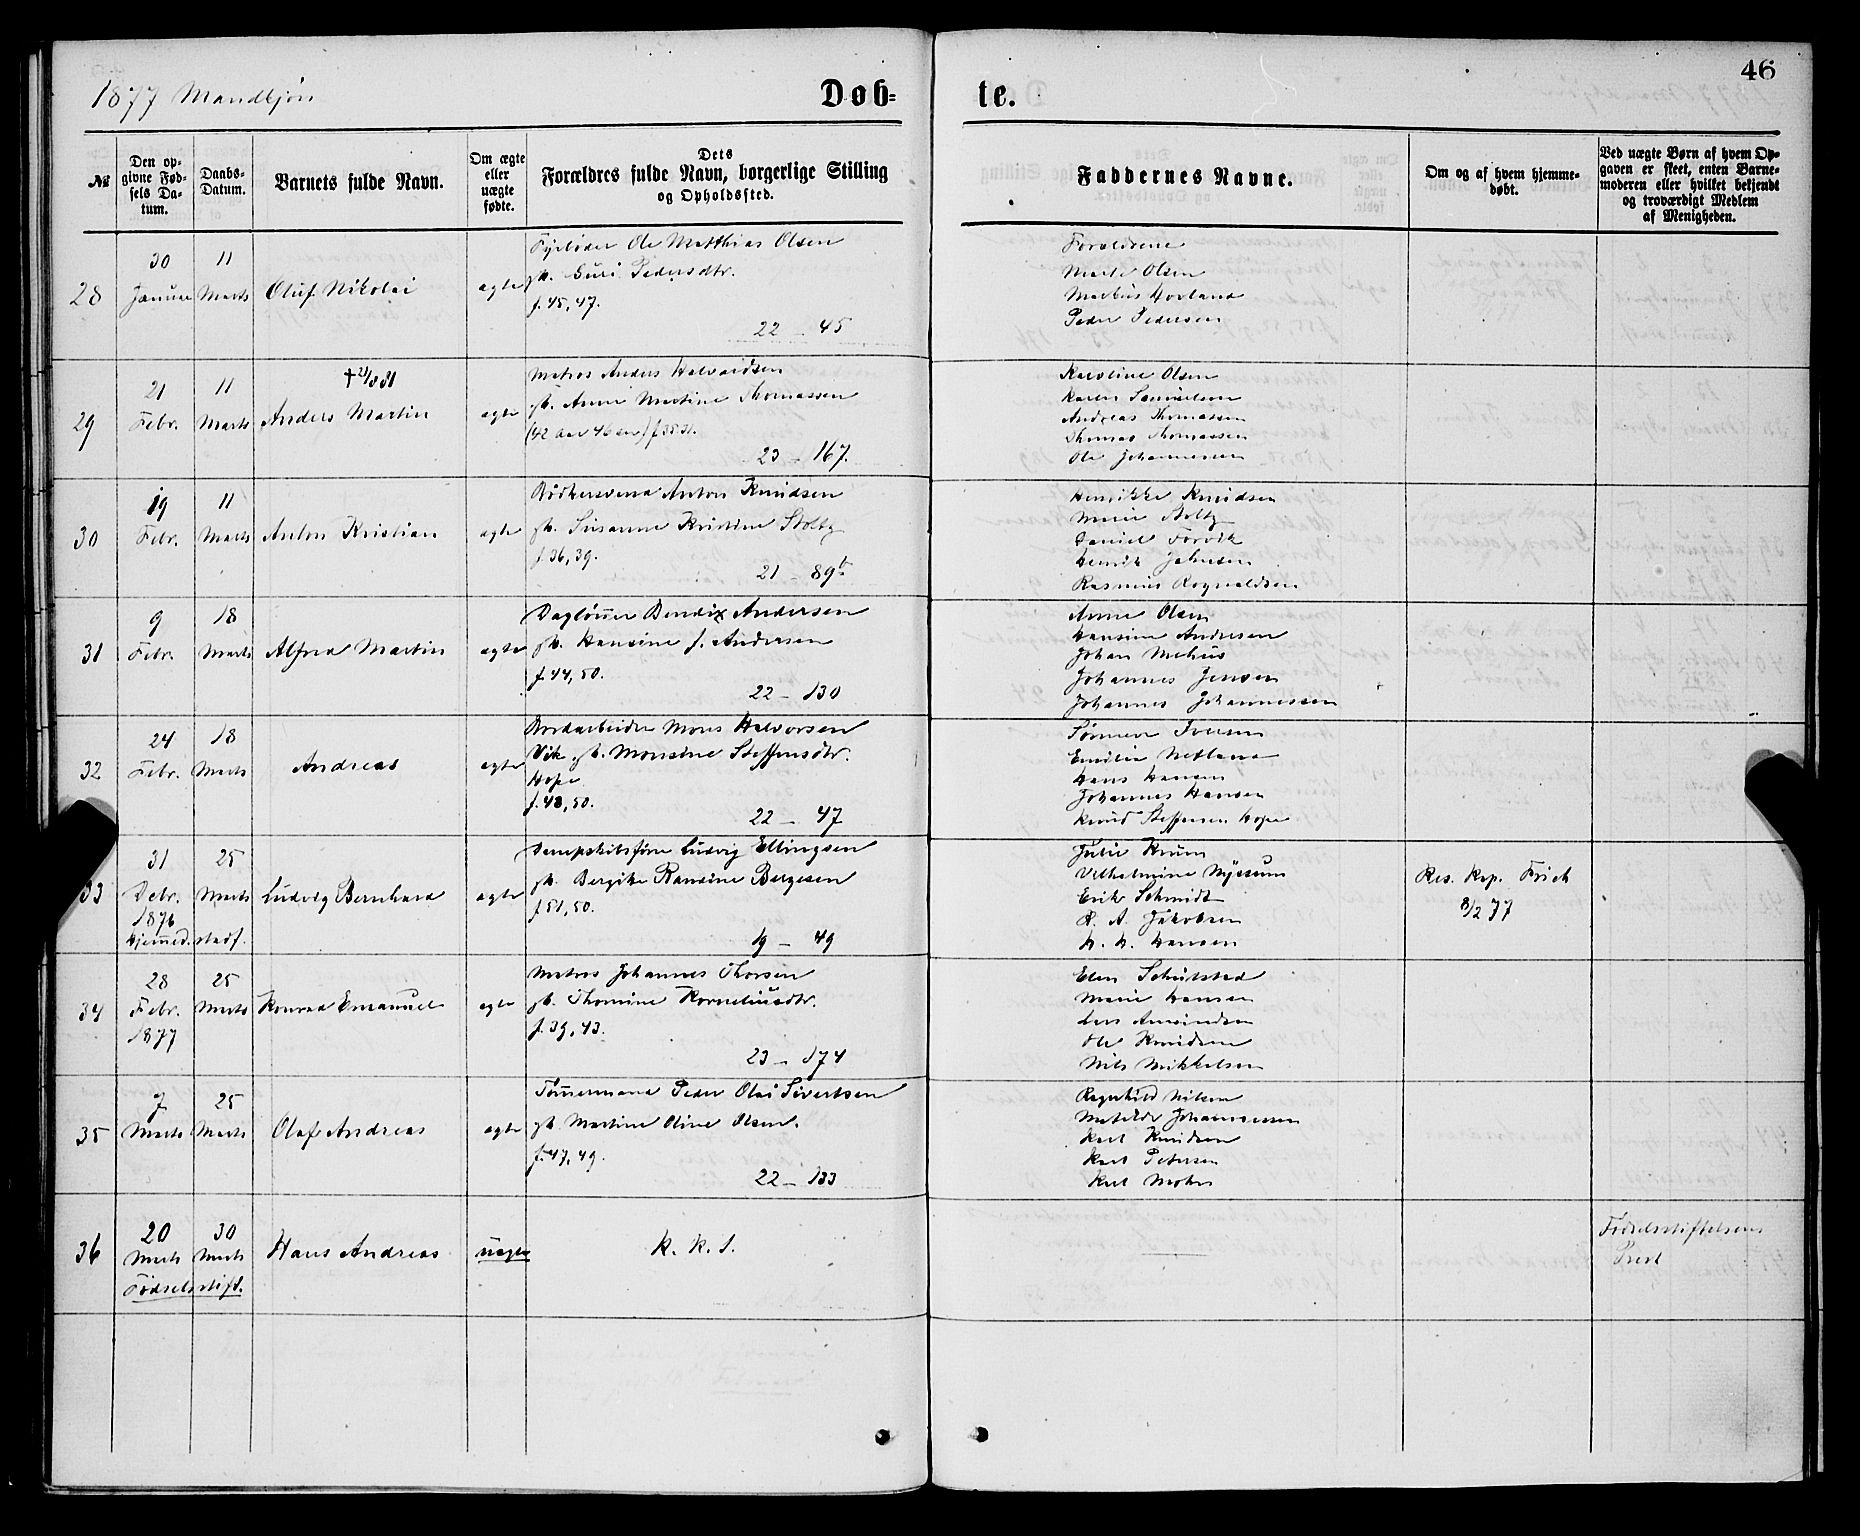 46
1877 Mandkjøn
Døb-
te.
№
Den opgivne Fødsels Datum.
Daabs-Datum.
Barnets fulde Navn.
Om ægte eller uægte fødte.
Dets Forældres fulde Navn, borgerlige Stilling og Opholdssted.
Faddernes Navne.
Om og af hvem hjemmedøbt.
Ved uægte Børn af hvem Opgaven er skeet, enten Barnemoderen eller hvilket bekjendt og troværdigt Medlem af Menigheden.
28
30 Januar
11 Marts
Oluf Nikolai
ægte
Fyrbøder Ole Matthias Olsen
gb. Guri Pedersdtr.
f. 45, 47.
22 - 45
Forældrene
Marte Olsen
Markus Hovland
Peder Pedersen
29
21 Febr.
11 Marts
† 21/8 81
Anders Martin
ægte
Matros Anders Halvardsen
gb. Anne Martine Thomassen
f. 35. 31.
23 - 167.
Karoline Olsen
Karen Samuelsen
Andreas Thomassen
Thomas Thomassen
Ole Johannessen
30
19 Febr.
11 Marts
Anton Kristian
ægte
Bødkersvend Anton Knudsen
gb. Susanne Kristine Stoltz
f. 36, 39.
21 - 89b
Henrikke Knudsen
Marie Stoltz
Daniel Forvik
Henrik Johnsen
Rasmus Rognaldsen
31
9 Febr.
18 Marts
Alfred Martin
ægte
Dagløner Bendix Andersen
gb. Hansine f. Andersen
f. 44, 50.
22 - 130
Anne Olsen
Hansine Andresen
Johan Mehus
Johannes Jensen
Johannes Johannessen
32
24 Febr.
18 Marts
Andreas
ægte
Bordarbeider Mons Halvorsen
Vik gb. Monsine Steffensdtr.
Hope
f. 48, 50.
22 - 47
Sørine Iversen
Emilie Netland
Hans Hansen
Johannes Hansen
Knud Steffensen Hope
33
31 Debr. 1876
25 Marts
hjemmed. stadf.
Ludvig Bernhard
ægte
Dampskibsfører Ludvig Ellingsen
gb. Bergite Ransine Børgesen
f. 51, 50.
19 - 49
Julie Krum
Vilhelmine Myssum
Erik Schmidt
R. A. Jakobsen
H. H. Hansen
Res. Kap. Frich
8/2 77
34
28 Febr. 1877
25 Marts
Konrad Emanuel
ægte
Matros Johannes Thorsen
gb. Thomine Korneliusdtr.
f. 39, 43.
23 - 174
Elen Schulstad
Marie Hansen
Lars Amundsen
Ole Knudsen
Nils Mikkelsen
35
7 Marts
25 Marts
Olaf Andreas
ægte
Tømmermand Peder Olai Sivertsen
gb. Martine Oline Olsen.
f. 47, 49.
22 - 133
Ragnhild Nilsen
Matilde Johannessen
Karl Knudsen
Karl Petersen
Karl Mohn
36
20 Marts
30 Marts
Fødselsstift.
Hans Andreas
uægte
K. K. S.
Fødselsstiftelsens
Prest